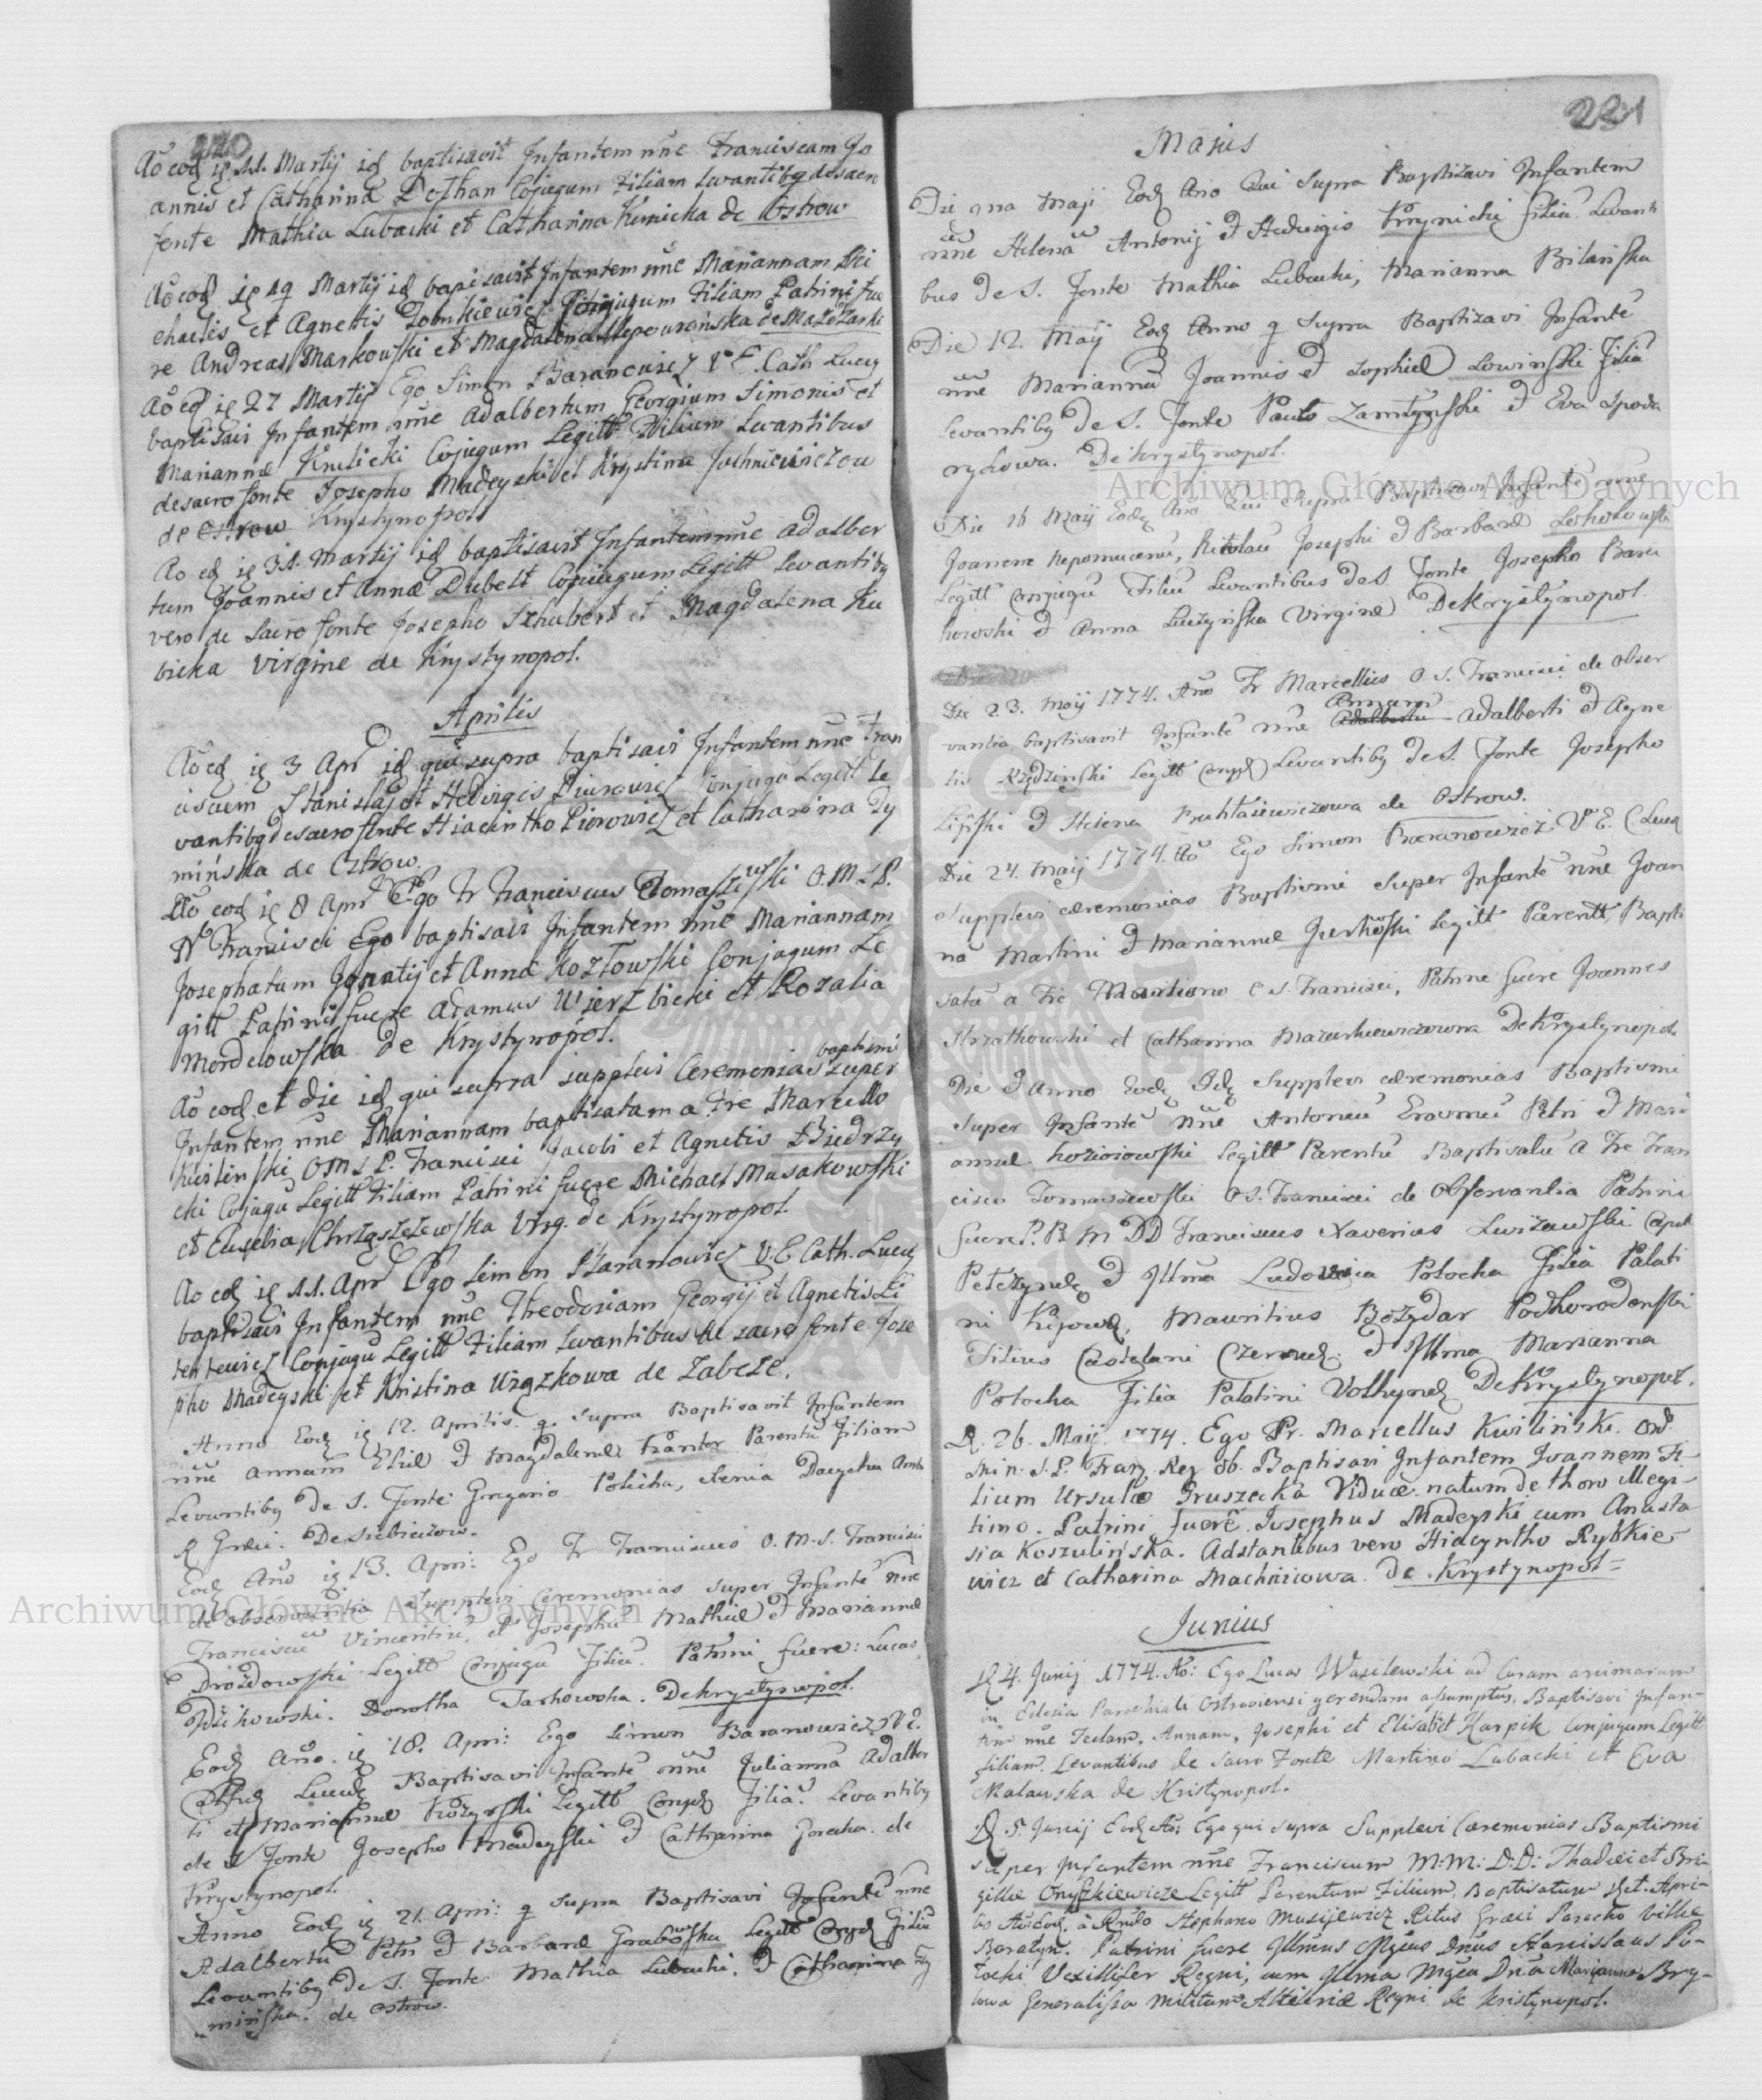 220
Ao eod ię 11. Martij id baptisavit Infantem nne Franciscam Jo
annis et Catharinæ Dethan Cojugum Filiam Levantibq de sacro
fonte Mathia Lubacki et Catharina Kimicka de Ostrow
Ao eod ię 19 Martij id bapisavit Infantem nne Mariannam Mi
chaelis et Agnetis Filiam Patrini fue
re Andreas Markowski et Magdalena
Ao eod ię 27 Martij Ego Simon Baranowicz V. E. Cath Luceę
baptisavi Infantem nne Adalbertum Georgium Simonis et
Mariannæ Kmlicki Cojugum Legitt Filium Levantibus
de sacro fonte Josepho Madeyski et Krystina
de Krystynopol
Ao eod ię 31. Martij id baptisavit Infantem nne Adalber
tum Joannis et Annæ Dubelt Conjugum Legitt Levantibq
vero de Sacro fonte Josepho Schubert et Magdalena Ku
bicka Virgine de Krystynopol.
Aprilis
Ao eod ię 3 Apr id qui supra baptisavi Infantem nne Fran
ciscum Stanislaj et Hedvigis Piurowicz Conjugu Legitt Le
vantibq de sacro fonte Hiacintho Piurowicz et Catharina Ty
mińska de Ostrow.
Ao eod ię 8 Apr Ego Fr Franciscus Tomaszewski O.M.S.P.
N Francisci Ego baptisavi Infantem nne Mariannam
Josephatam Ignatij et Annæ Kozłowski Conjugum Le
gitt Patrini fuere Adamus Wierzbicki et Rozalia
Mordelowska de Krystynopol.
Ao eod et die id qui supra supplevi Ceremonias baptismi super
Infantem nne Mariannam baptisatam a Fre Marcello
Kwilinski O M S P. Francisci Jacobi et Agnetis Biedrzy
cki Cojugu Legitt Filiam Patrini fuere Michael Musakowski
et Euzebia Chrząszczewska Virg. de Krystynopol
Ao eod ię 11. Apr Ego Simon Baranowicz V. E Cath. Luceę
baptisavi Infantem nne Theodoziam Georgij et Agnetis Li
tentwicz Conjugu Legitt Filiam Levantibus de sacro fonte Jose
pho Madeyski et Kristina Urązkowa de Zabcze.
Anno Eod ię 12. Aprilis. q. supra Baptisavit Infantem
nne Annam Eliæ et Magdalenæ Kantor Parentu Filiam
Levantibq de S. Fonte Gregorio Policha, Xenia Daycka Ambo
R Græci. De Siebieczow.
Eod Ano ię 13. Apri: Ego Fr Franciscus O. M. S. Francisci
de observantia Supplevi Ceremonias super Infante nne
Franciscu Vincentiu, et Josephu Mathiæ et Mariannæ
Drożdowski Legitt Conjugu Filiu. Patrini fuere: Lucas
Dzikowski. Dorotha Tarkowska. De Krystynopol.
Eod Ano. ię 18. Apri: Ego Simon Baranowicz V E.
Luceę Baptisavi Infante nne Julianna Adalber
ti et Mariannæ Krozyński Legitt Conjd Filia. Levantibq
de S Fonte Josepho Madeyski et Catharina Gorecka. de
Krystynopol.
Anno Eod ię 21. Apri: q supra Baptisavi Infante nne
Adalbertu Petri et Barbaræ Grabowska Legitt Conjd Filiu
Levantibq de S. Fonte Mathia Lubacki, et Catharina Ty
mińska. de Ostrow.
221
Majus
Die 9na Maji Eod Ano Qui Supra Baptizavi Infantem
nne Helena Antonij et Hedvigis Krynicki filia Levanti
bus De S. Fonte Mathia Lubacki, Marianna Bilańska
Die 12. Maij Eod Anno q Supra Baptizavi Infante
nne Marianna Joannis et Sophiæ Lowinski Filia
Levantibq De S. Fonte Paulo Zamtynski et Eva Spoda
rykowa. De Krystynopol.
Die 16 Maij Eodę Ano Qui Supra Baptisavi Infante nne
Joannem Nepomucenu, Nicolau Josephi et Barbaræ
Legitt Conjugu Filiu Levantibus De S. Fonte Josepho Barci
kowski et Anna Luszyńska Virginæ De Krystynopol.
Die 23. Maij 1774. Ano Fr Marcellus O. S. Francisci de Obser
vantia baptisavit Infante nne Annam Adalbertu Adalberti et Agne
tis Rzędziński Legitt Conjd Levantibq De S. Fonte Josepho
Lipski et Helena Pruktasiewiczowa de Ostrow.
Die 24. Maij 1774. Ao Ego Simon Baranowicz V E. C Luceę
Supplevi cæremonias Baptismi Super Infante nne Joan
na Martini et Mariannæ Jurkowski Legitt Parentt, Bapti
satu a Fre O S. Francisci, Patrini fuere Joannes
Strzatkowski et Catharina Mazurkiewiczowna De Krystynopol
Die et Anno Eodę Idę Supplevi cæremonias Baptismi
Super Infante nne Antoniu Erasmu Petri et Mari
annæ Legitt Parentu Baptisatu a Fre Fran
cisco Tomaszewski O S. Francisci de Observantia Patrini
fuere P. R M DD Franciscus Xaverius Lwiżawski Capel
Pełczynę et Illma Ludovica Potocka Filia Palati
ni Kijowę, Mauritius Bożydar Podhorodenski
Filius Castelani Czernę. et Illma Marianna
Potocka Filia Palatini Volhynę De Krystynopol.
D. 26. Maij. 1774. Ego Fr. Marcellus Kwiliński. Ord.
Min. S. P. Franz. Reg Ob. Baptisavi Infantem Joannem Fi-
lium Ursulæ Gruszecka Viduæ. natum de thoro illegi-
timo. Patrini fuere. Josephus Madeyski cum Anasta-
sia Koszulińska. Adstantibus vero Hiacyntho Rybkie-
wicz et Catharina Machnicowa. de Krystynopol=
Junius
D 4. Junij 1774. Ao: Ego Lucas Wasilewski ad Curam animarum
in Eclesia Parochiali Ostroviensi gerendam assumptus, Baptisavi Infan-
tem nne Teclam, Annam, Josephi et Elisabet Karpik Conjugum Legitt
filiam. Levantibus de Sacro Fonte Martino Lubacki et Eva
Malawska de Kristynopol.
D 5. Junij Eod Ao: Ego qui supra Supplevi Cæremonias Baptismi
super Infantem nne Franciscum M: M: D: D: Thadæi et Bri-
gittæ Onyszkiewicze Legitt Parentum Filium, Baptisatum Apri-
lis Ao: Eod. à Rndo Stephano Musijewicz Ritus Græci Parocho Villæ
Boratyn. Patrini fuere Illmus Mgcus Dnus Stanislaus Po-
tocki Vexillifer Regni, cum Illma Mgca Dna Marianna Bry-
lowa Generalissa militum Altileriæ Regni de Kristynopol.
Archiwum Główne Akt Dawnych
Archiwum Główne Akt Dawnych